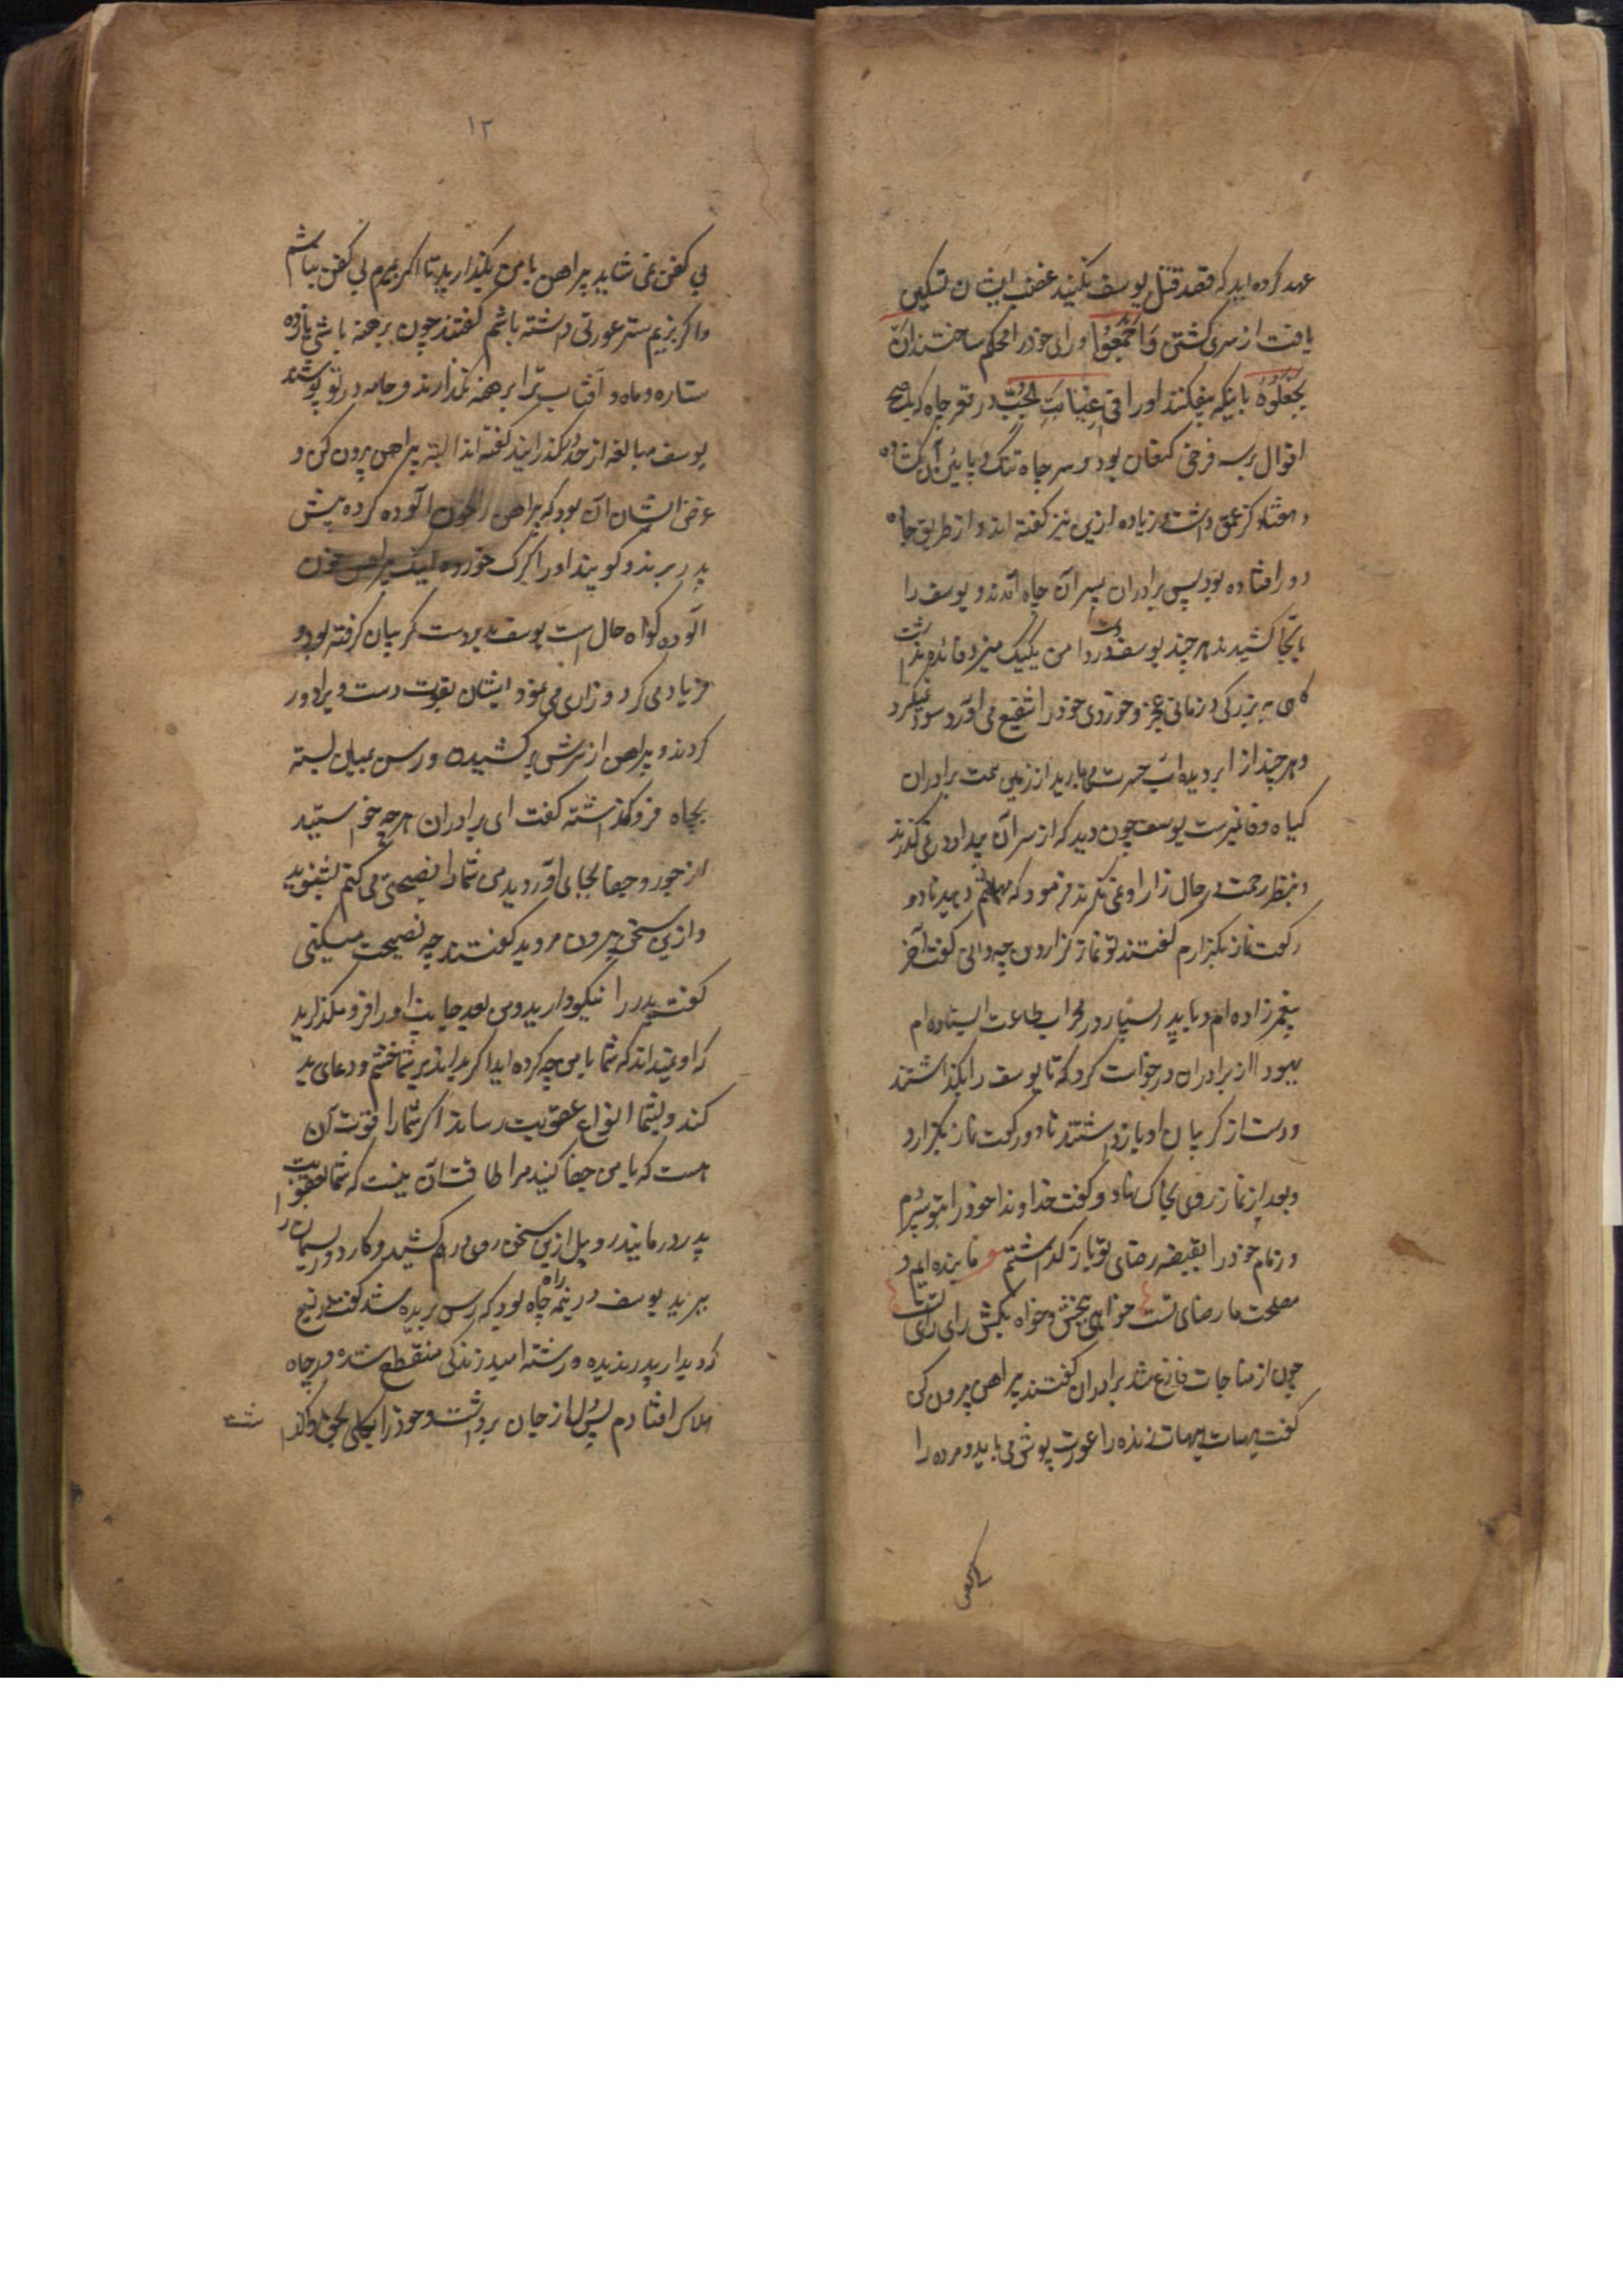 عهد کرده اید که قصد قتل یوسف نکنید غضب ایشان تسکین
یافت از سر کشتن وَاَجْمَعُوا ورای خود را محکم ساختند اَنْ
یَجْعَلُوهُ باینکه بیفکنند او را فی غَیَابَتِ الجُبِّ در قعر چاه که باصح
اقوال بر سه فرسخی کنعان بود و سر چاه تنک و پایین آن کشاده
و هفتاد کز عمق داشت و زیاده ازین نیز کفته اند و از طریق جاده
دور افتاده بود پس برادران بسر آن چاه آمدند و یوسف را
بانجا کشیدند هر چند یوسف دست در دامن یکیک میزد فائده نداشت
کاهی به بزرکی و زمانی عجز و خوردی خود را شفیع می آورد سود نمیکرد
و هر چند از ابر دیده آب حسرت میبارید از زمین محبت برادران
کیاه وفا نمیرست یوسف چون دید که از سر آن بیداد در نمی کذرند
و بنظر رحمت در حال زار او نمی نکرند فرمود که مهلتم دهید تا دو
رکعت نماز بکزارم کفتند تو نماز کزاردن چه دانی کفت آخر
پیغمبر زاده ام و با پدر بسیار در محراب طاعت ایستاده ام
یهودا از برادران درخواست کرد که تا یوسف را بکذاشتند
و دست از کریبان او بازداشتند تا دو رکعت نماز بکزارد
و بعد از نماز روی بخاک نهاد و کفت خداوندا خود را بتو سپردم
و زمام خود را بقبضه رضای تو باز کذاشتم ع ما بنده ایم و
مصلحت ما رضای تست خواهی ببخش و خواه بکش رای رای تست
چون از مناجات فارغ شد برادران کفتند پیراهن بیرون کن
کفت هیهات هیهات زنده را عورت پوش می باید و مرده را
بی کفن
۱۲
بی کفن نمی شاید پیراهن با من بکذارید تا اکر بمیرم بی کفن نباشم
و اکر بزیم ستر عورتی داشته باشم کفتند چون برهنه باشی یازده
ستاره و ماه و آفتاب ترا برهنه نکذارند و جامه در تو پوشند
یوسف مبالغه از حد بکذرانید کفته اند البته پیراهن بیرون کن و
غرض ایشان آن بود که پیراهن را بخون آلوده کرده پیش
پدر برند و کویند او را کرک خورده اینک پیراهن خون
آلوده کواه حال است یوسف بدو دست کریبان کرفته بود و
فریاد می کرد و زاری می نمود ایشان بقوت دست ویرا دور
کردند و پیراهن از سرش بر کشیده و رسن بمیان بسته
بچاه فرو کذاشته کفت ای برادران هر چه خواستید
از جور و جفا بجای آوردید من شما را نصیحتی می کنم بشنوید
و ازین سخن بیرون مروید کفتند چه نصیحت میکنی
کفت پدر را نیکو دارید و من بعد جانب او را فرو مکذارید
که او نمیداند که شما با من چه کرده اید اکر بداند بر شما خشم و دعای بد
کند و بشما انواع عقوبت رساند اکر شما را قوت آن
هست که با من جفا کنید مرا طاقت آن نیست که شما بعقوبت
پدر درمانید روبیل ازین سخن روی درهم کشید و کارد و ریسمان را
ببرید یوسف در نیمه راه چاه بود که رسن بریده شد کفت دریغ
که دیدار پدر ندیده و رشته امید زندکی منقطع شده در چاه
هلاک افتادم پس دل از جان برداشت و خود را بکلی بحق واکذاشت